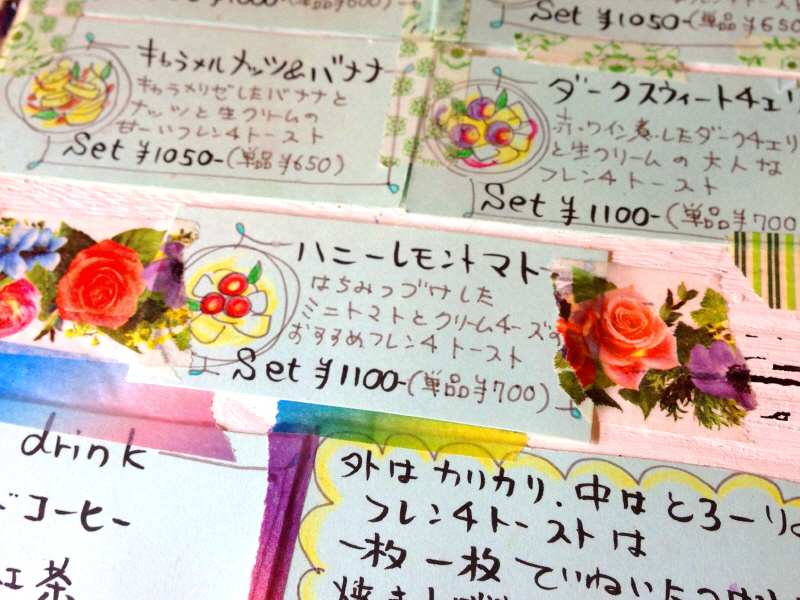 (単品¥600)
Set ¥1050-(単品¥650
キャラメルナッツ&バナナ
キャラメリゼしたバナナと
ナッツと生クリームの
甘〜いフレンチトースト
Set ¥1050-(単品¥650)
ダークスウィートチェリ
赤ワイン煮したダークチェリ
と生クリームの大人な
フレンチトースト
Set ¥1100-(単品¥700
ハニーレモントマト
はちみつづけした
ミニトマトとクリームチーズの
おすすめフレンチトースト
Set ¥1100-(単品¥700)
drink
コーヒー
紅茶
外はカリカリ、中はとろーり
フレンチトーストは
一枚一枚ていねいに
焼き